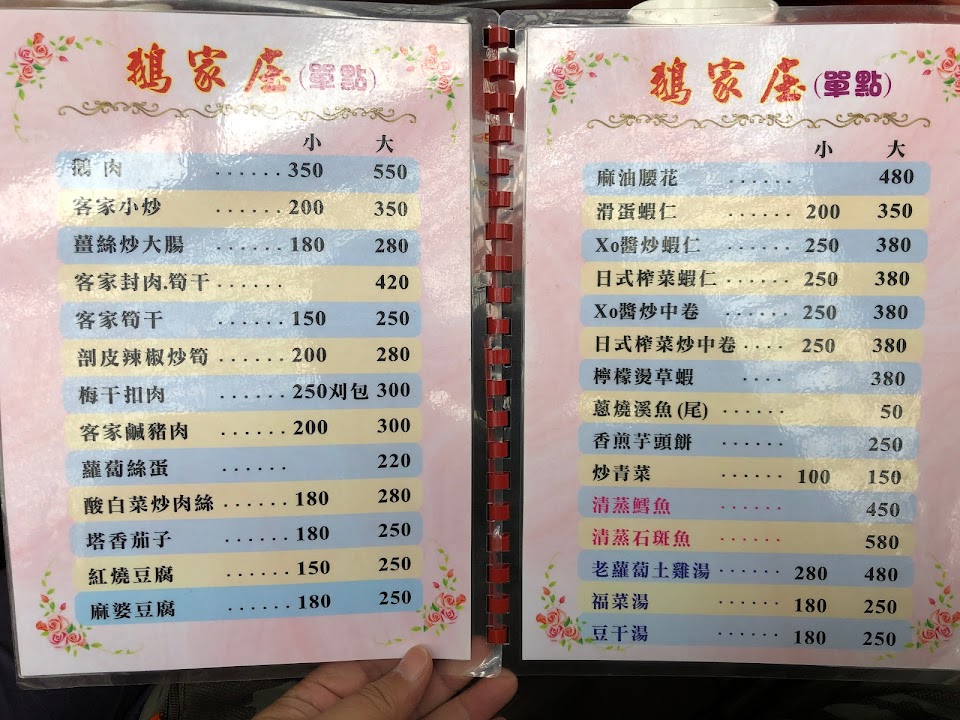 鵝家庄(單點)
小 大
鵝肉 ...... 350 550
客家小炒 ...... 200 350
薑絲炒大腸 ...... 180 280
客家封肉.筍干 ...... 420
客家筍干 ...... 150 250
剖皮辣椒炒筍 ...... 200 280
梅干扣肉 ...... 250 刈包 300
客家鹹豬肉 ...... 200 300
蘿蔔絲蛋 ...... 220
酸白菜炒肉絲 ...... 180 280
塔香茄子 ...... 180 250
紅燒豆腐 ...... 150 250
麻婆豆腐 ...... 180 250
鵝家庄(單點)
小 大
麻油腰花 ...... 480
滑蛋蝦仁 ...... 200 350
Xo醬炒蝦仁 ...... 250 380
日式榨菜蝦仁 ...... 250 380
Xo醬炒中卷 ...... 250 380
日式榨菜炒中卷 .... 250 380
檸檬燙草蝦 .... 380
蔥燒溪魚(尾) ...... 50
香煎芋頭餅 ...... 250
炒青菜 ...... 100 150
清蒸鱈魚 ...... 450
清蒸石斑魚 ...... 580
老蘿蔔土雞湯 ...... 280 480
福菜湯 ...... 180 250
豆干湯 ...... 180 250